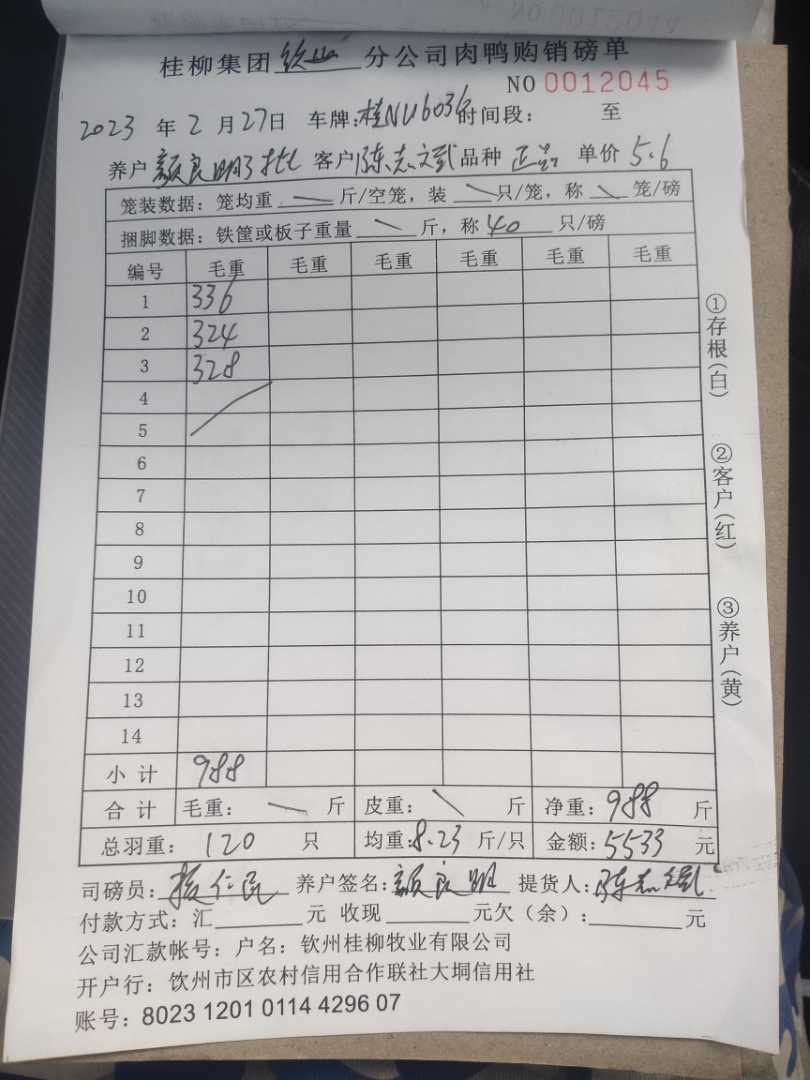 桂柳集团钦州分公司肉鸭购销磅单
NO 0012045
2023 年 2 月 27 日 车牌：桂NU6036 时间段： 至
养户 颜良明3批 客户 陈志斌 品种 正品 单价 5.6
笼装数据：笼均重 斤/空笼，装 只/笼，称 笼/磅
捆脚数据：铁筐或板子重量 斤，称 40 只/磅
编号 毛重 毛重 毛重 毛重 毛重 毛重
1 336
2 324
3 328
4
5
6
7
8
9
10
11
12
13
14
小 计 988
合 计 毛重： 斤 皮重： 斤 净重：988 斤
总羽重： 120 只 均重：8.23 斤/只 金额：5533 元
司磅员： 仁民 养户签名：颜良明 提货人：陈志斌
付款方式：汇 元 收现 元欠（余）： 元
公司汇款帐号：户名：钦州桂柳牧业有限公司
开户行：饮州市区农村信用合作联社大垌信用社
账号：8023 1201 0114 4296 07
①存根（白）
②客户（红）
③养户（黄）